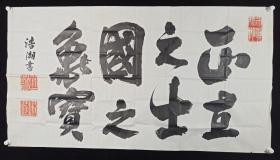 正直
之士
國之
寶
浩湖書